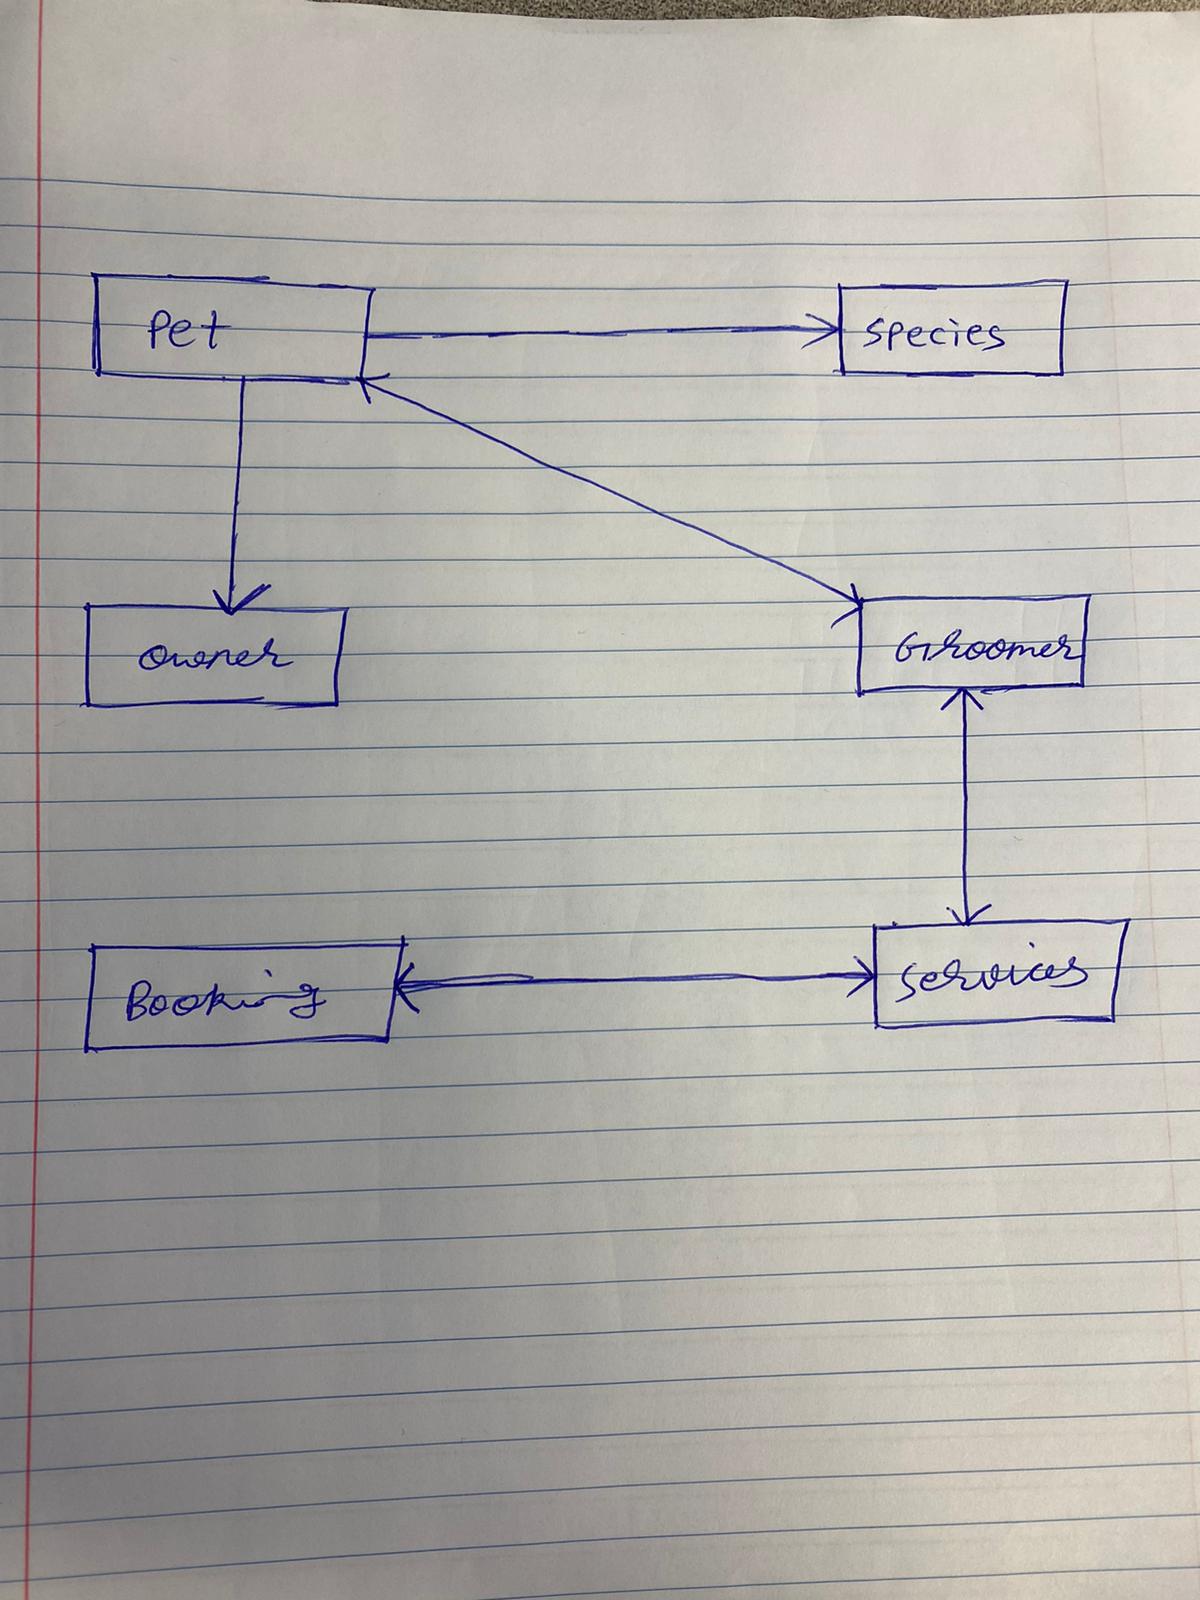 Pet
Species
Owner
Groomer
Booking
Services